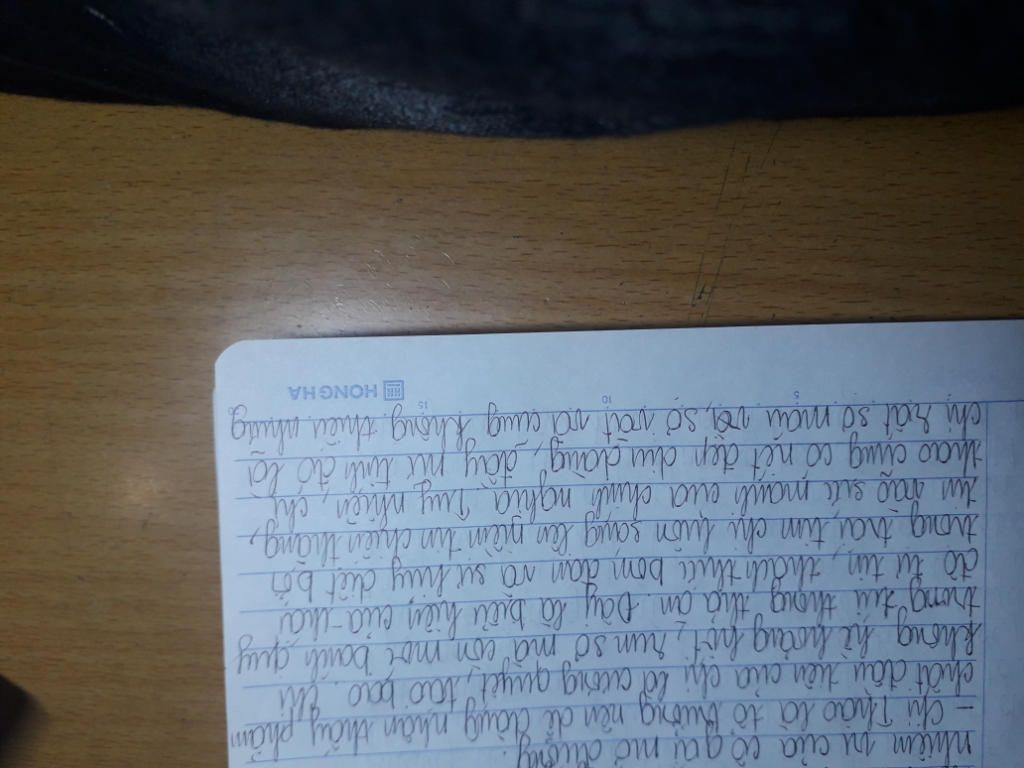 nhiệm vụ của cô gái mở đường.
- Chị Thao là tổ trưởng nên dễ dàng nhận thấy phẩm
chất đầu tiên của chị là cương quyết, táo bạo. Chị
không hề hoảng hốt, run sợ mà còn móc bánh quy
trong túi thong thả ăn. Đây là biểu hiện của thái
độ tự tin, thách thức bom đạn và sự hủy diệt bởi
trong trái tim chị luôn sáng lên niềm tin chiến thắng,
tin vào sức mạnh của chính nghĩa. Tuy nhiên, chị
thao cũng có nét đẹp dịu dàng, đầy nữ tính đó là
chị rất sợ máu rơi, sợ vắt và cũng không thiếu những
HONG HA
5 10 15